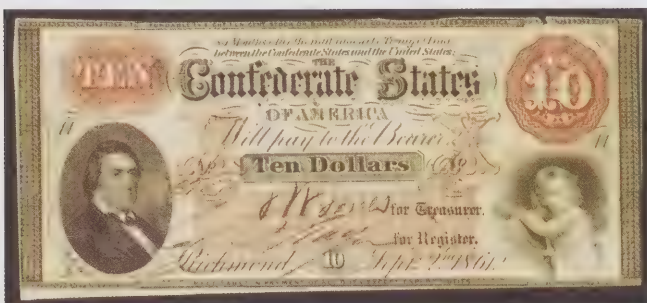 Months after the ratification of a Treaty of Peace
between the Confederate States and the United States:
TEN
THE
Confederate States
10
OF AMERICA
11
11
Will pay to the Bearer
Ten Dollars
for Treasurer.
for Register.
Richmond
10
Sept. 2nd 1861.